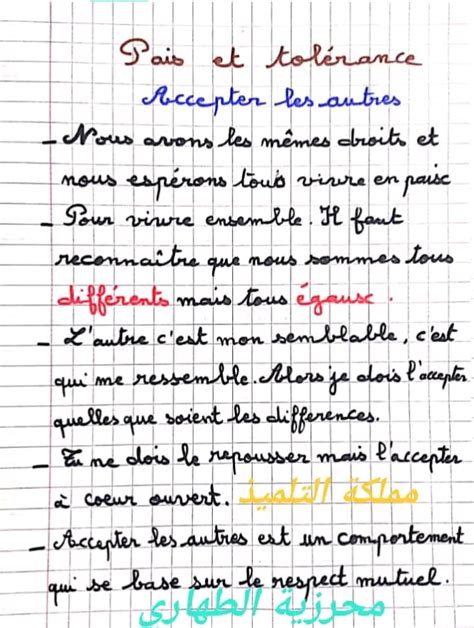 Paix et tolérance
Accepter les autres
- Nous avons les mêmes droits et
nous espérons tous vivre en paix
- Pour vivre ensemble. Il faut
reconnaître que nous sommes tous
différents mais tous égaux.
- L'autre c'est mon semblable, c'est
qui me ressemble. Alors je dois l'accepter
quelles que soient les differences.
- Tu ne dois le repousser mais l'accepter
à coeur ouvert. مملكة التلميذ
- Accepter les autres est un comportement
qui se base sur le respect mutuel.
محرزية الطهاري